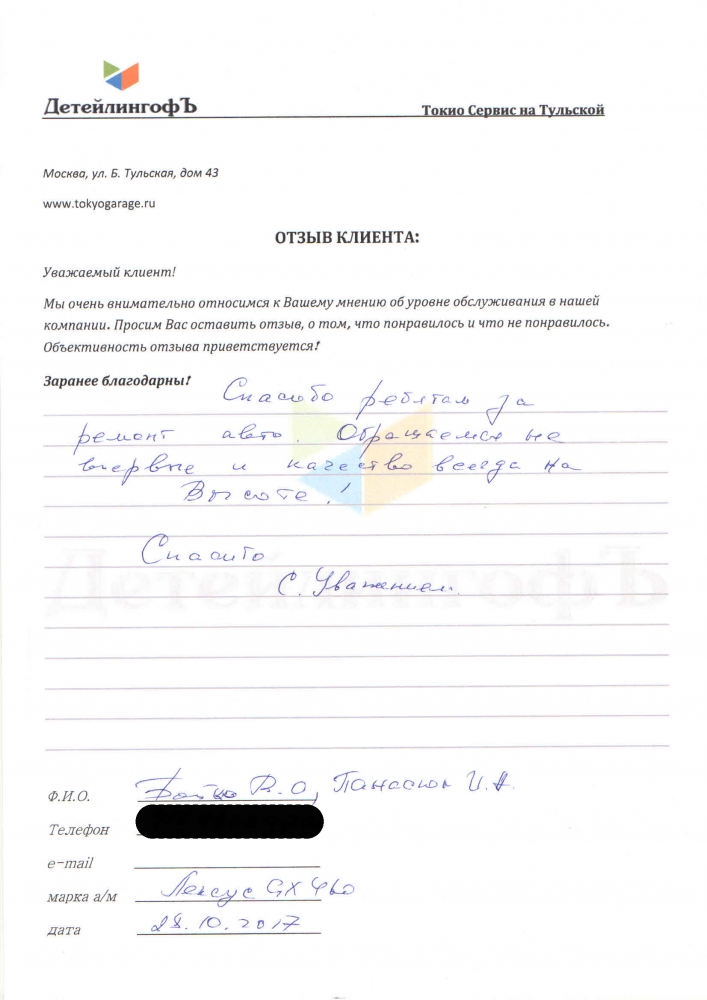 ДетейлингофЪ
Токио Сервис на Тульской
Москва, ул. Б. Тульская, дом 43
www.tokyogarage.ru
ОТЗЫВ КЛИЕНТА:
Уважаемый клиент!
Мы очень внимательно относимся к Вашему мнению об уровне обслуживания в нашей
компании. Просим Вас оставить отзыв, о том, что понравилось и что не понравилось.
Объективность отзыва приветствуется!
Заранее благодарны!
Спасибо ребятам за
ремонт авто. Обращаемся не
впервые и качество всегда на
Высоте!
Спасибо
С. Уважением.
ДетейлингофЪ
Ф.И.О. В.О, Панасюк И.А.
Телефон
e-mail
марка а/м Лексус GX 460
дата 28.10.2017